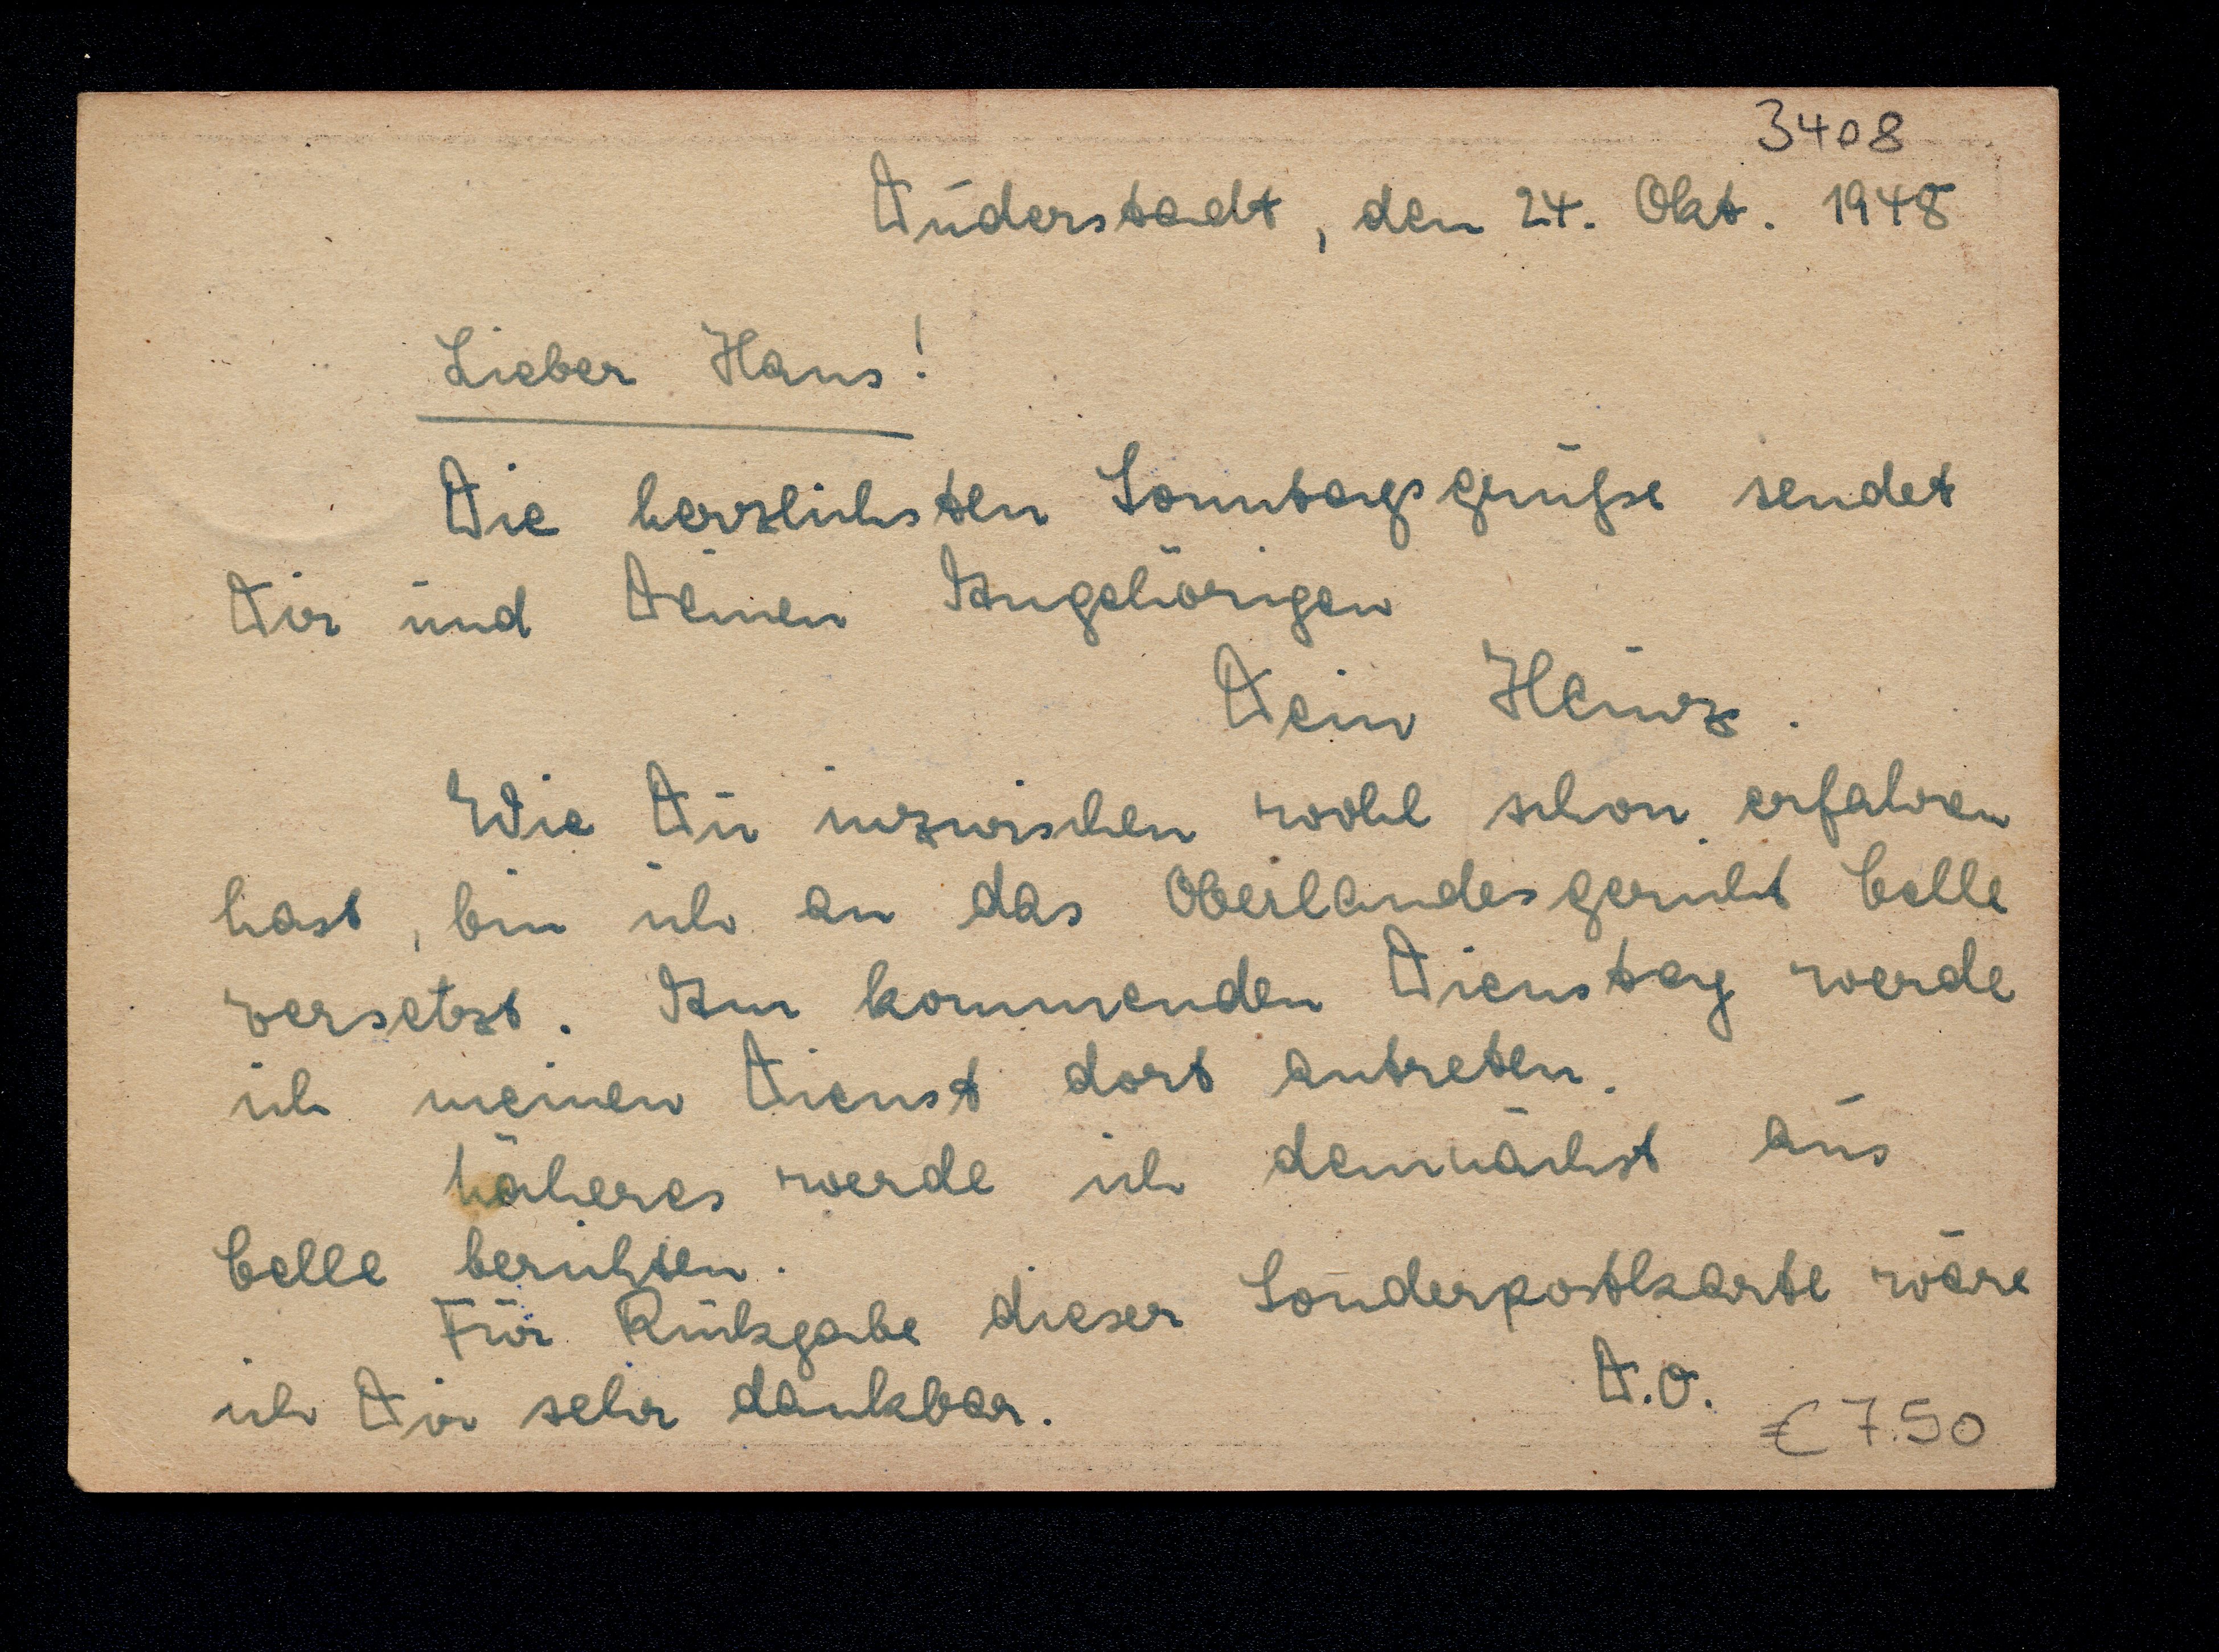 3408
Duderstadt, den 24. Okt. 1948
Lieber Hans!
Die herzlichsten Sonntagsgrüße sendet
Dir und Deinen Angehörigen
Dein Heinz.
Wie Du inzwischen wohl schon erfahren
hast, bin ich an das Oberlandesgericht Celle
versetzt. Am kommenden Dienstag werde
ich meinen Dienst dort antreten.
Näheres werde ich demnächst aus
Celle berichten.
Für Rückgabe dieser Sonderpostkarte wäre
ich Dir sehr dankbar.
D.O.
€ 7.50